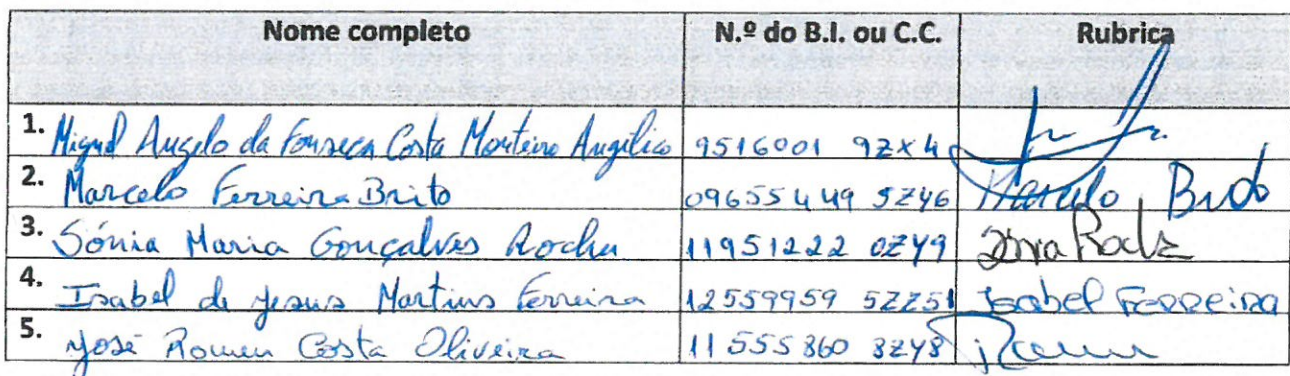 Nome completo N.º do B.I. ou C.C. Rubrica
1. Miguel Angelo da Fonseca Costa Monteiro Angélico 9516001 9ZX4
2. Marcelo Ferreira Brito 09655449 5ZY6 Marcelo Brito
3. Sónia Maria Gonçalves Rocha 11951222 0ZY9 Sónia Rocha
4. Isabel de Jesus Martins Ferreira 12559959 5ZZ51 Isabel Ferreira
5. José Romeu Costa Oliveira 11555360 3ZY8